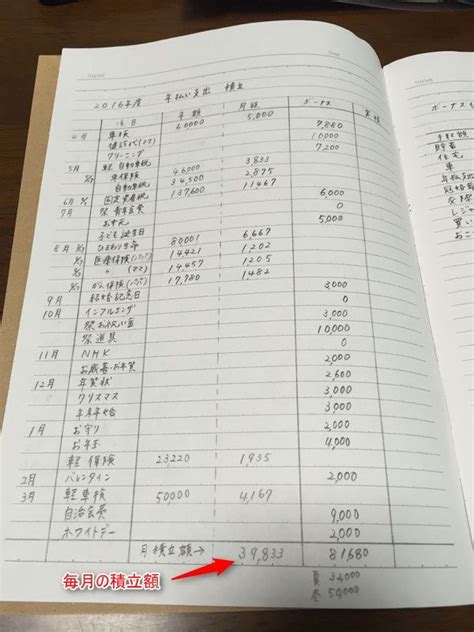 THEME
2016年度 年払い支出 積立
項目 年額 月額 ボーナス 実積
4月 車検 60000 5,000
健診代(ママ) 7,880
クリーニング 10,000
7,200
5月 軽自動車税 3833
車保険 46000 2,875
自動車税 34,500 11467
6月 固定資産税 137,600
7月 祭 青年会費 6,000
お中元 0
子ども誕生日 5,000
8月 ひまわり生命 80001 6,667
医療保険(パパ) 14421 1,202
〃 (ママ) 14,457 1205
がん保険(パパ) 17,780 1,482
9月 結婚記念日 3,000
10月 インフルエンザ 0
祭お祝い金 3,000
祭道具 10,000
11月 NHK 0
お歳暮・お年賀 2,000
12月 年賀状 2,600
クリスマス 3,000
年末年始 3,000
1月 お守り 2,000
お年玉 4,000
軽保険 23220 1,935
2月 バレンタイン 2,000
3月 軽車検 50,000 4,167
自治会費 9,000
ホワイトデー 2,000
月積立額→ 39,833 81,680
毎月の積立額
夏 32,000
冬 50,000
THEME
ボーナス
貯蓄
住宅
車
年払支出
交際
レジャ
買い
おこ